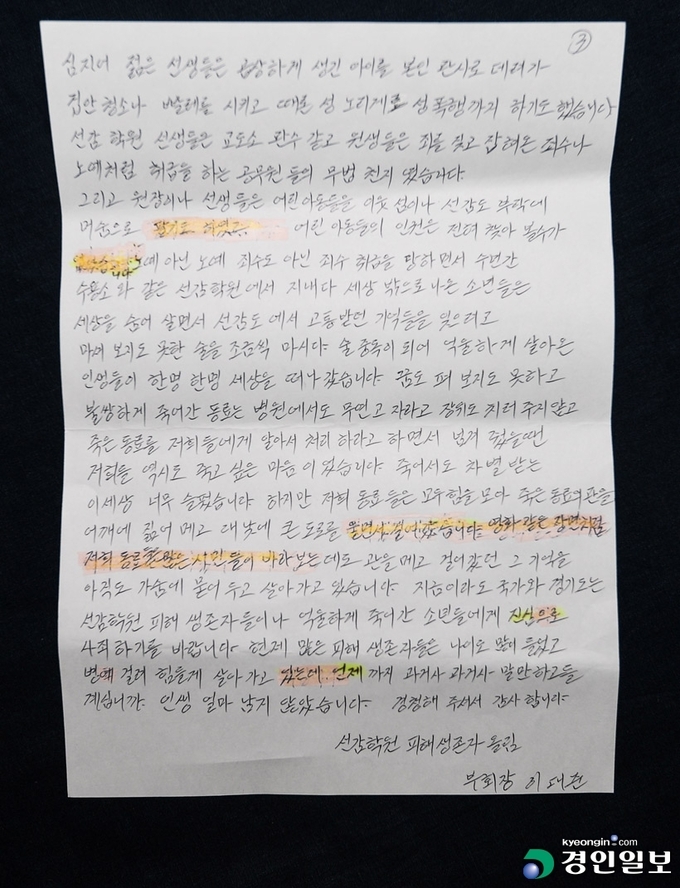 ③
심지어 젊은 선생들은 곱상하게 생긴 아이를 본인 관사로 데려가
집안청소나 빨래를 시키고 때론 성 노리게로 성폭행까지 하기도 했습니다
선감 학원 선생들은 교도소 간수 같고 원생들은 죄를 짓고 잡혀온 죄수나
노예처럼 취급을 하는 공무원 들의 무법 천지 였습니다.
그리고 원장이나 선생들은 어린아동들을 이웃 섬이나 선감도 부락에
머슴으로 팔기도 하였고. 어린 아동들의 인권은 전혀 찾아 볼수가
노예 아닌 노예 죄수도 아닌 죄수 취급을 당하면서 수년간
수용소 와 같은 선감학원에서 지내다 세상 밖으로 나온 소년들은
세상을 숨어 살면서 선감도에서 고통받던 기억들을 잊으려고
마셔 보지도 못한 술을 조금씩 마시다. 술 중독이 되어 억울하게 살아온
인생들이 한명 한명 세상을 떠나 갔습니다. 꿈도 펴 보지도 못하고
불쌍하게 죽어간 동료는 병원에서도 무연고 자라고 장례도 치러 주지 않고
죽은 동료를 저희들에게 알아서 처리 하라고 하면서 넘겨 줬을땐
저희들 역시도 죽고 싶은 마음 이었습니다. 죽어서도 차별 받는
이세상 너무 슬펐습니다. 하지만 저희 동료 들은 모두힘을 모아 죽은 동료의 관을
어깨에 짊어 메고 대낮에 큰 도로를 울면서 걸어 갔습니다. 영화 같은 장면처럼
저희 동료들 많은 시민 들이 바라보는데도 관을 메고 걸어갔던 그 기억을
아직도 가슴에 묻어 두고 살아가고 있습니다. 지금이라도 국가와 경기도는
선감학원 피해 생존자들이나 억울하게 죽어간 소년들에게 진심으로
사죄하기를 바랍니다. 현재 많은 피해 생존자들은 나이도 많이 들었고
병에 걸려 힘들게 살아 가고 있는데 언제 까지 과거사 과거사 말만 하고들
계십니까. 인생 얼마 남지 않았습니다. 경청해 주셔서 감사 합니다.
선감학원 피해생존자 올림
부회장 이
kyeongin.com
경인일보